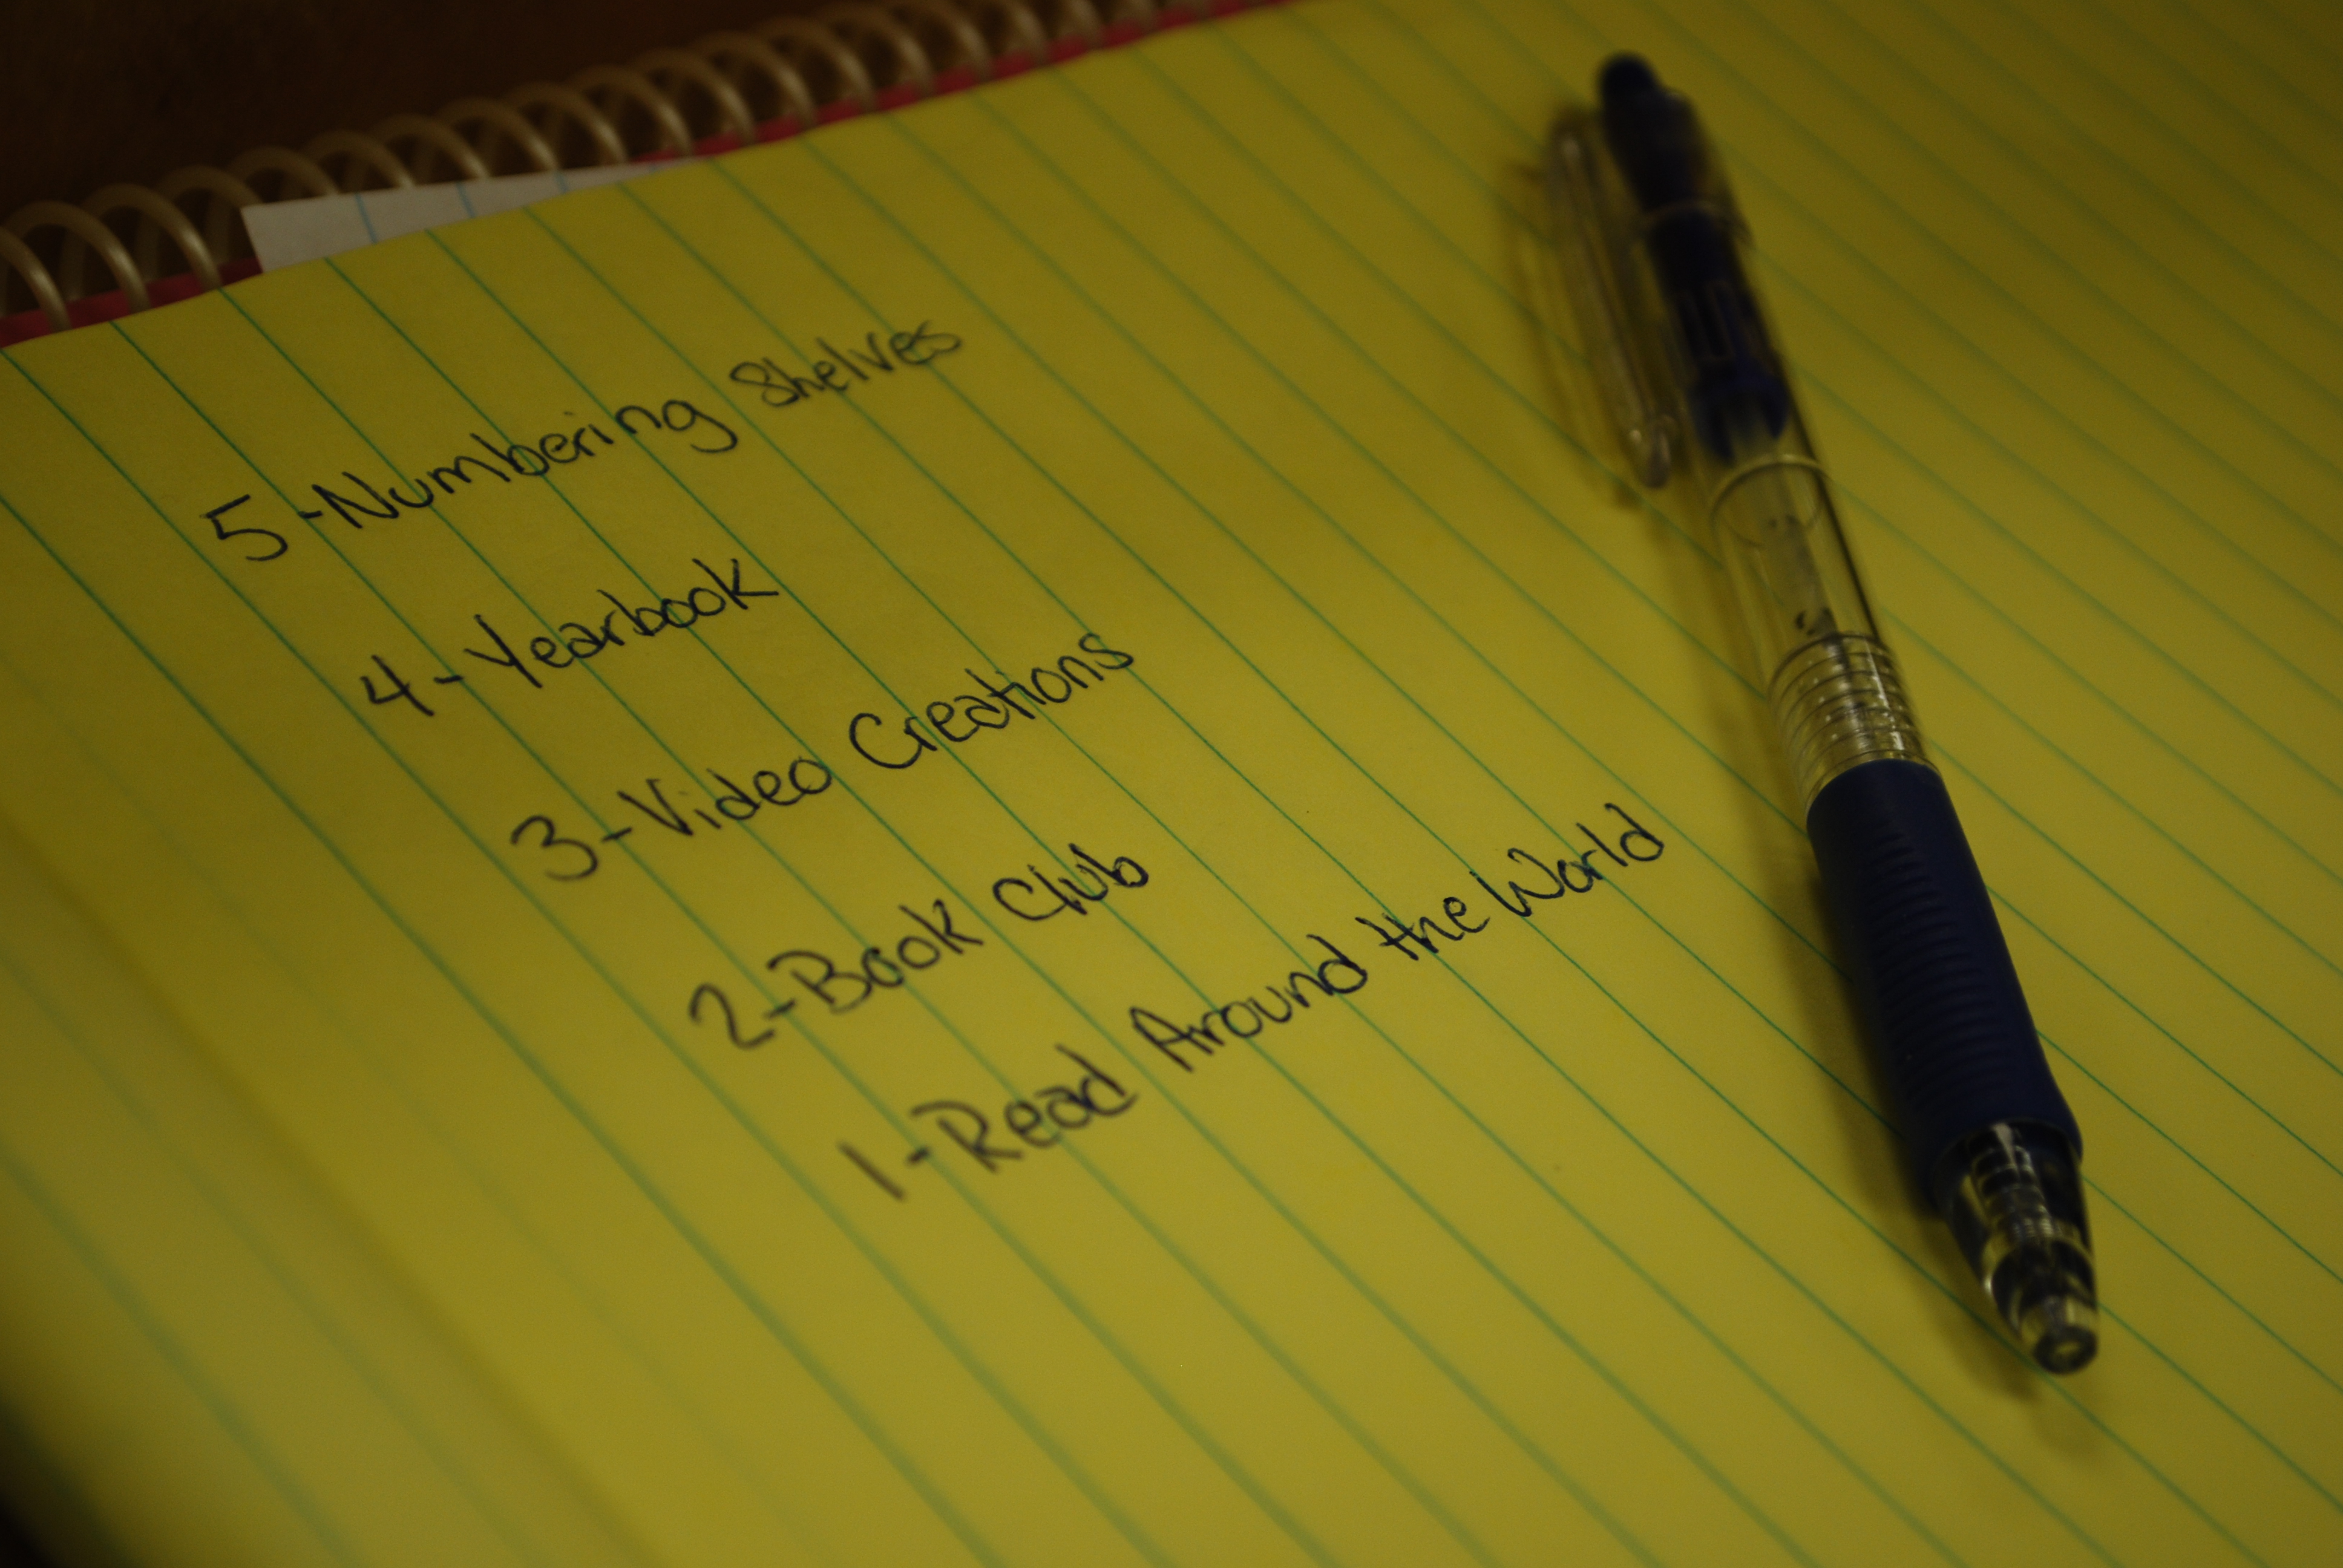 5-Numbering Shelves
4-Yearbook
3-Video Creations
2-Book Club
1-Read Around the World